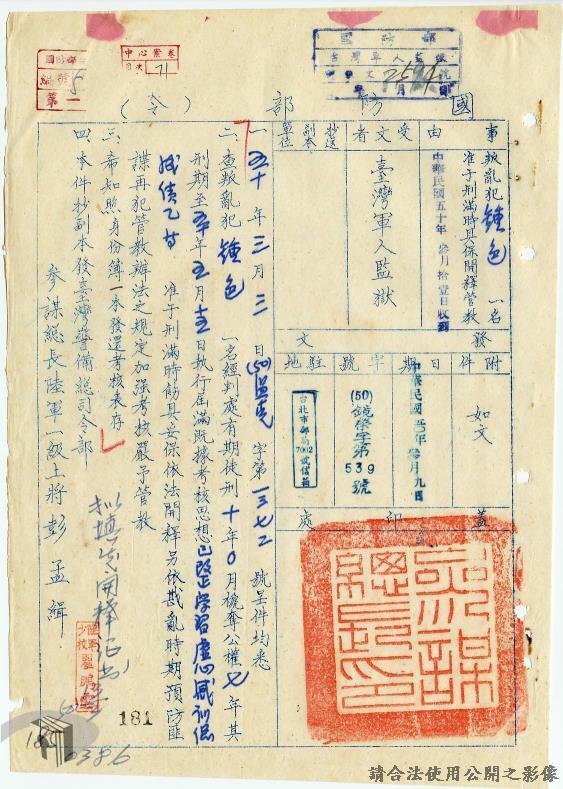 國防部
台灣軍人監獄
國防部(令)
中心案卷
目次 71
事由
叛亂犯鍾色一名
准予刑滿時具保開釋管教
中華民國五十年參月拾壹日收到
受文者
臺灣軍人監獄
抄送副本單位
附件
如文
發文
日期
中華民國五十年參月九日
字號
(50)鏡榮字第539號
駐地
台北市郵局7002號信箱
蓋印處
參謀總長印
一、五十年三月三日(50)監克字第一三七二號呈件均悉
二、查叛亂犯鍾色一名經判處有期徒刑十年0月褫奪公權七年其
刑期至五十年五月十五日執行屆滿既據考核思想已改正學習虛心感訓總
成績乙等 准予刑滿時飭具妥保依法開釋另依戡亂時期預防匪
諜再犯管教辦法之規定加強考核嚴予管教
三、希知照身份簿一本發還考核表存
四、本件抄副本發臺灣警備總司令部
參謀總長陸軍一級上將彭孟緝
181
0386
請合法使用公開之影像